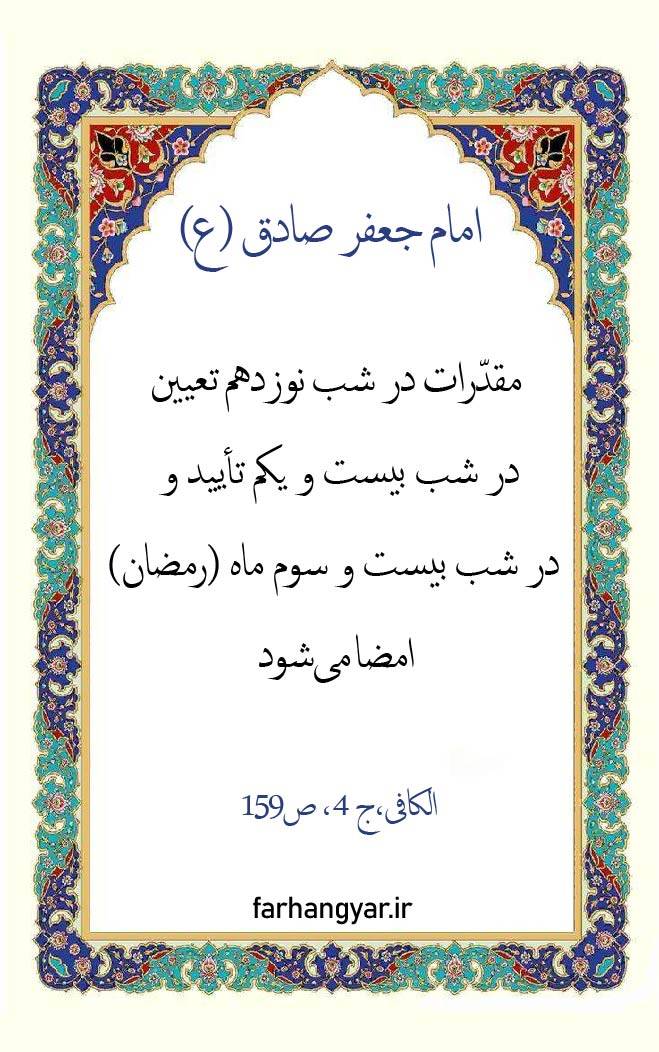 امام جعفر صادق (ع)
مقدّرات در شب نوزدهم تعیین
در شب بیست و یکم تأیید و
در شب بیست و سوم ماه (رمضان)
امضا می‌شود
الکافی،ج 4، ص159
farhangyar.ir